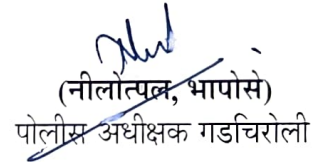 (नीलोत्पल, भापोसे)
पोलीस अधीक्षक गडचिरोली